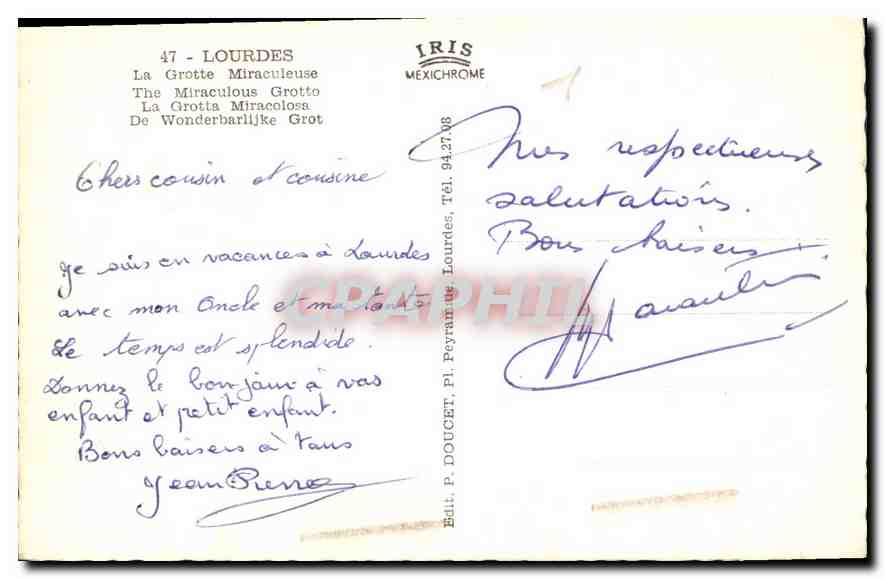 47 - LOURDES
La Grotte Miraculeuse
The Miraculous Grotto
La Grotta Miracolosa
De Wonderbarlijke Grot
IRIS
MEXICHROME
Chers cousin et cousine
Je suis en vacances à Lourdes
avec mon Oncle et ma tante
Le temps est splendide.
Donnez le bonjour à vos
enfant et petit enfant.
Bons baisers à tous
Jean Pierre
Edit. P. DOUCET, Pl. Peyramale, Lourdes, Tél. 94.27.08
Mes respectueuses
salutations.
Bons baisers
CPAPHIL